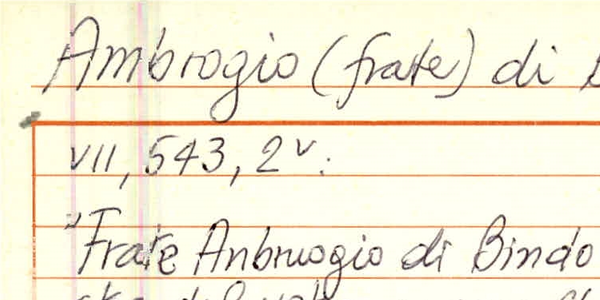 Ambrogio (frate) di
VII, 543, 2v:
"Frate Anbruogio di Bindo